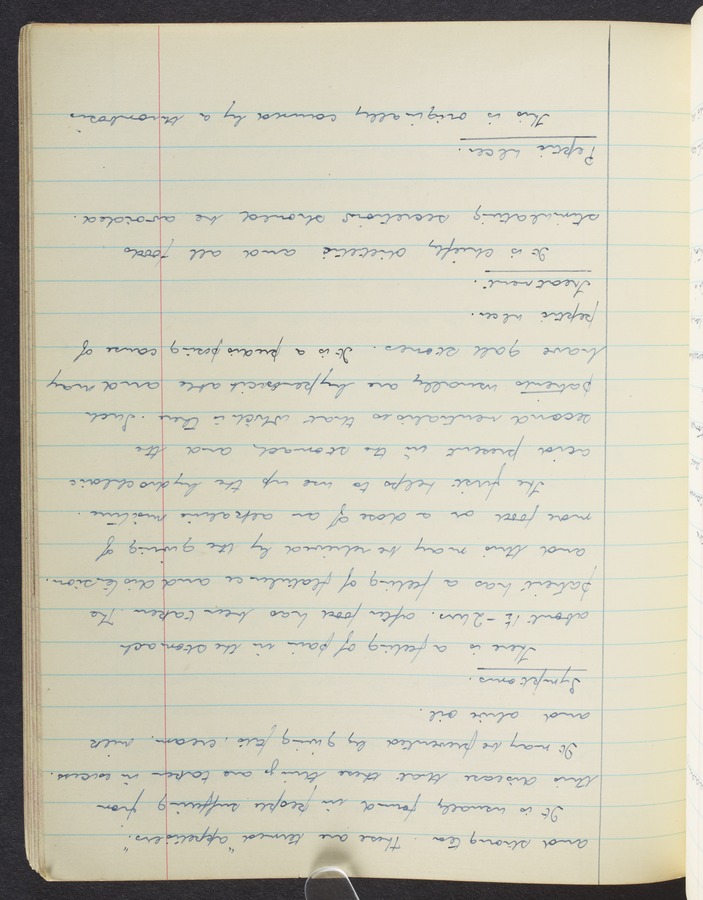 and strong tea. These are termed "appetisers".
It is usually found in people suffering from
this disease that these things are taken in excess.
It may be prevented by giving fats, cream, milk
and olive oil.
Symptoms.
There is a feeling of pain in the stomach
about 1½ - 2 hrs. after food has been taken. The
patient has a feeling of flatulence and distension.
and this may be relieved by the giving of
more food or a dose of an alkaline mixture.
The first helps to use up the hydrochloric
acid present in the stomach, and the
second neutralises that which is there. Such
patients usually are hypersensitive and may
have gall stones. It is a predisposing cause of
peptic ulcer.
Treatment.
It is chiefly dietetic and all foods
stimulating secretions should be avoided.
Peptic ulcer.
This is originally caused by a thrombosis